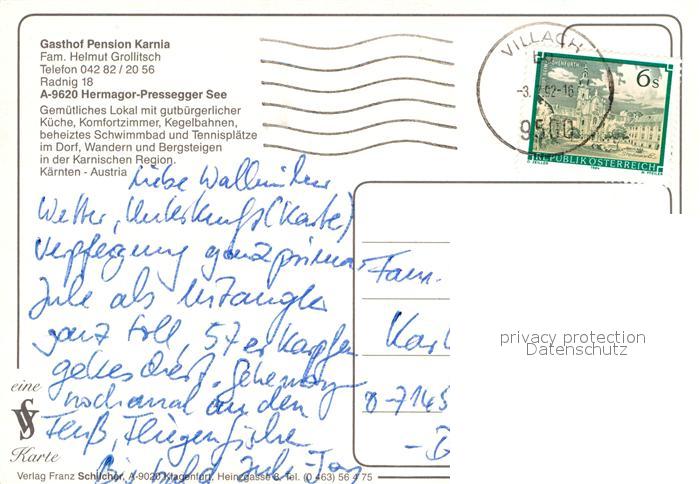 Gasthof Pension Karnia
Fam. Helmut Grollitsch
Telefon 042 82 / 20 56
Radnig 18
A-9620 Hermagor-Pressegger See
Gemütliches Lokal mit gutbürgerlicher
Küche, Komfortzimmer, Kegelbahnen,
beheiztes Schwimmbad und Tennisplätze
im Dorf, Wandern und Bergsteigen
in der Karnischen Region.
Kärnten - Austria
VILLACH
-3. 92-16
9500
6s
REPUBLIK ÖSTERREICH
Liebe
Wetter, Unterkunft (Karte)
Verpflegung ganz prima
Jule als
ganz toll, 57er Karpfen
nochmal an den
Fluß, Fliegenfischen
Bis bald Jule
Fam.
Karl
D-7145
privacy protection
Datenschutz
eine
VS
Karte
Verlag Franz Schilcher, A-9020 Klagenfurt, Heinzgasse 8, Tel. (0 463) 56 4 75